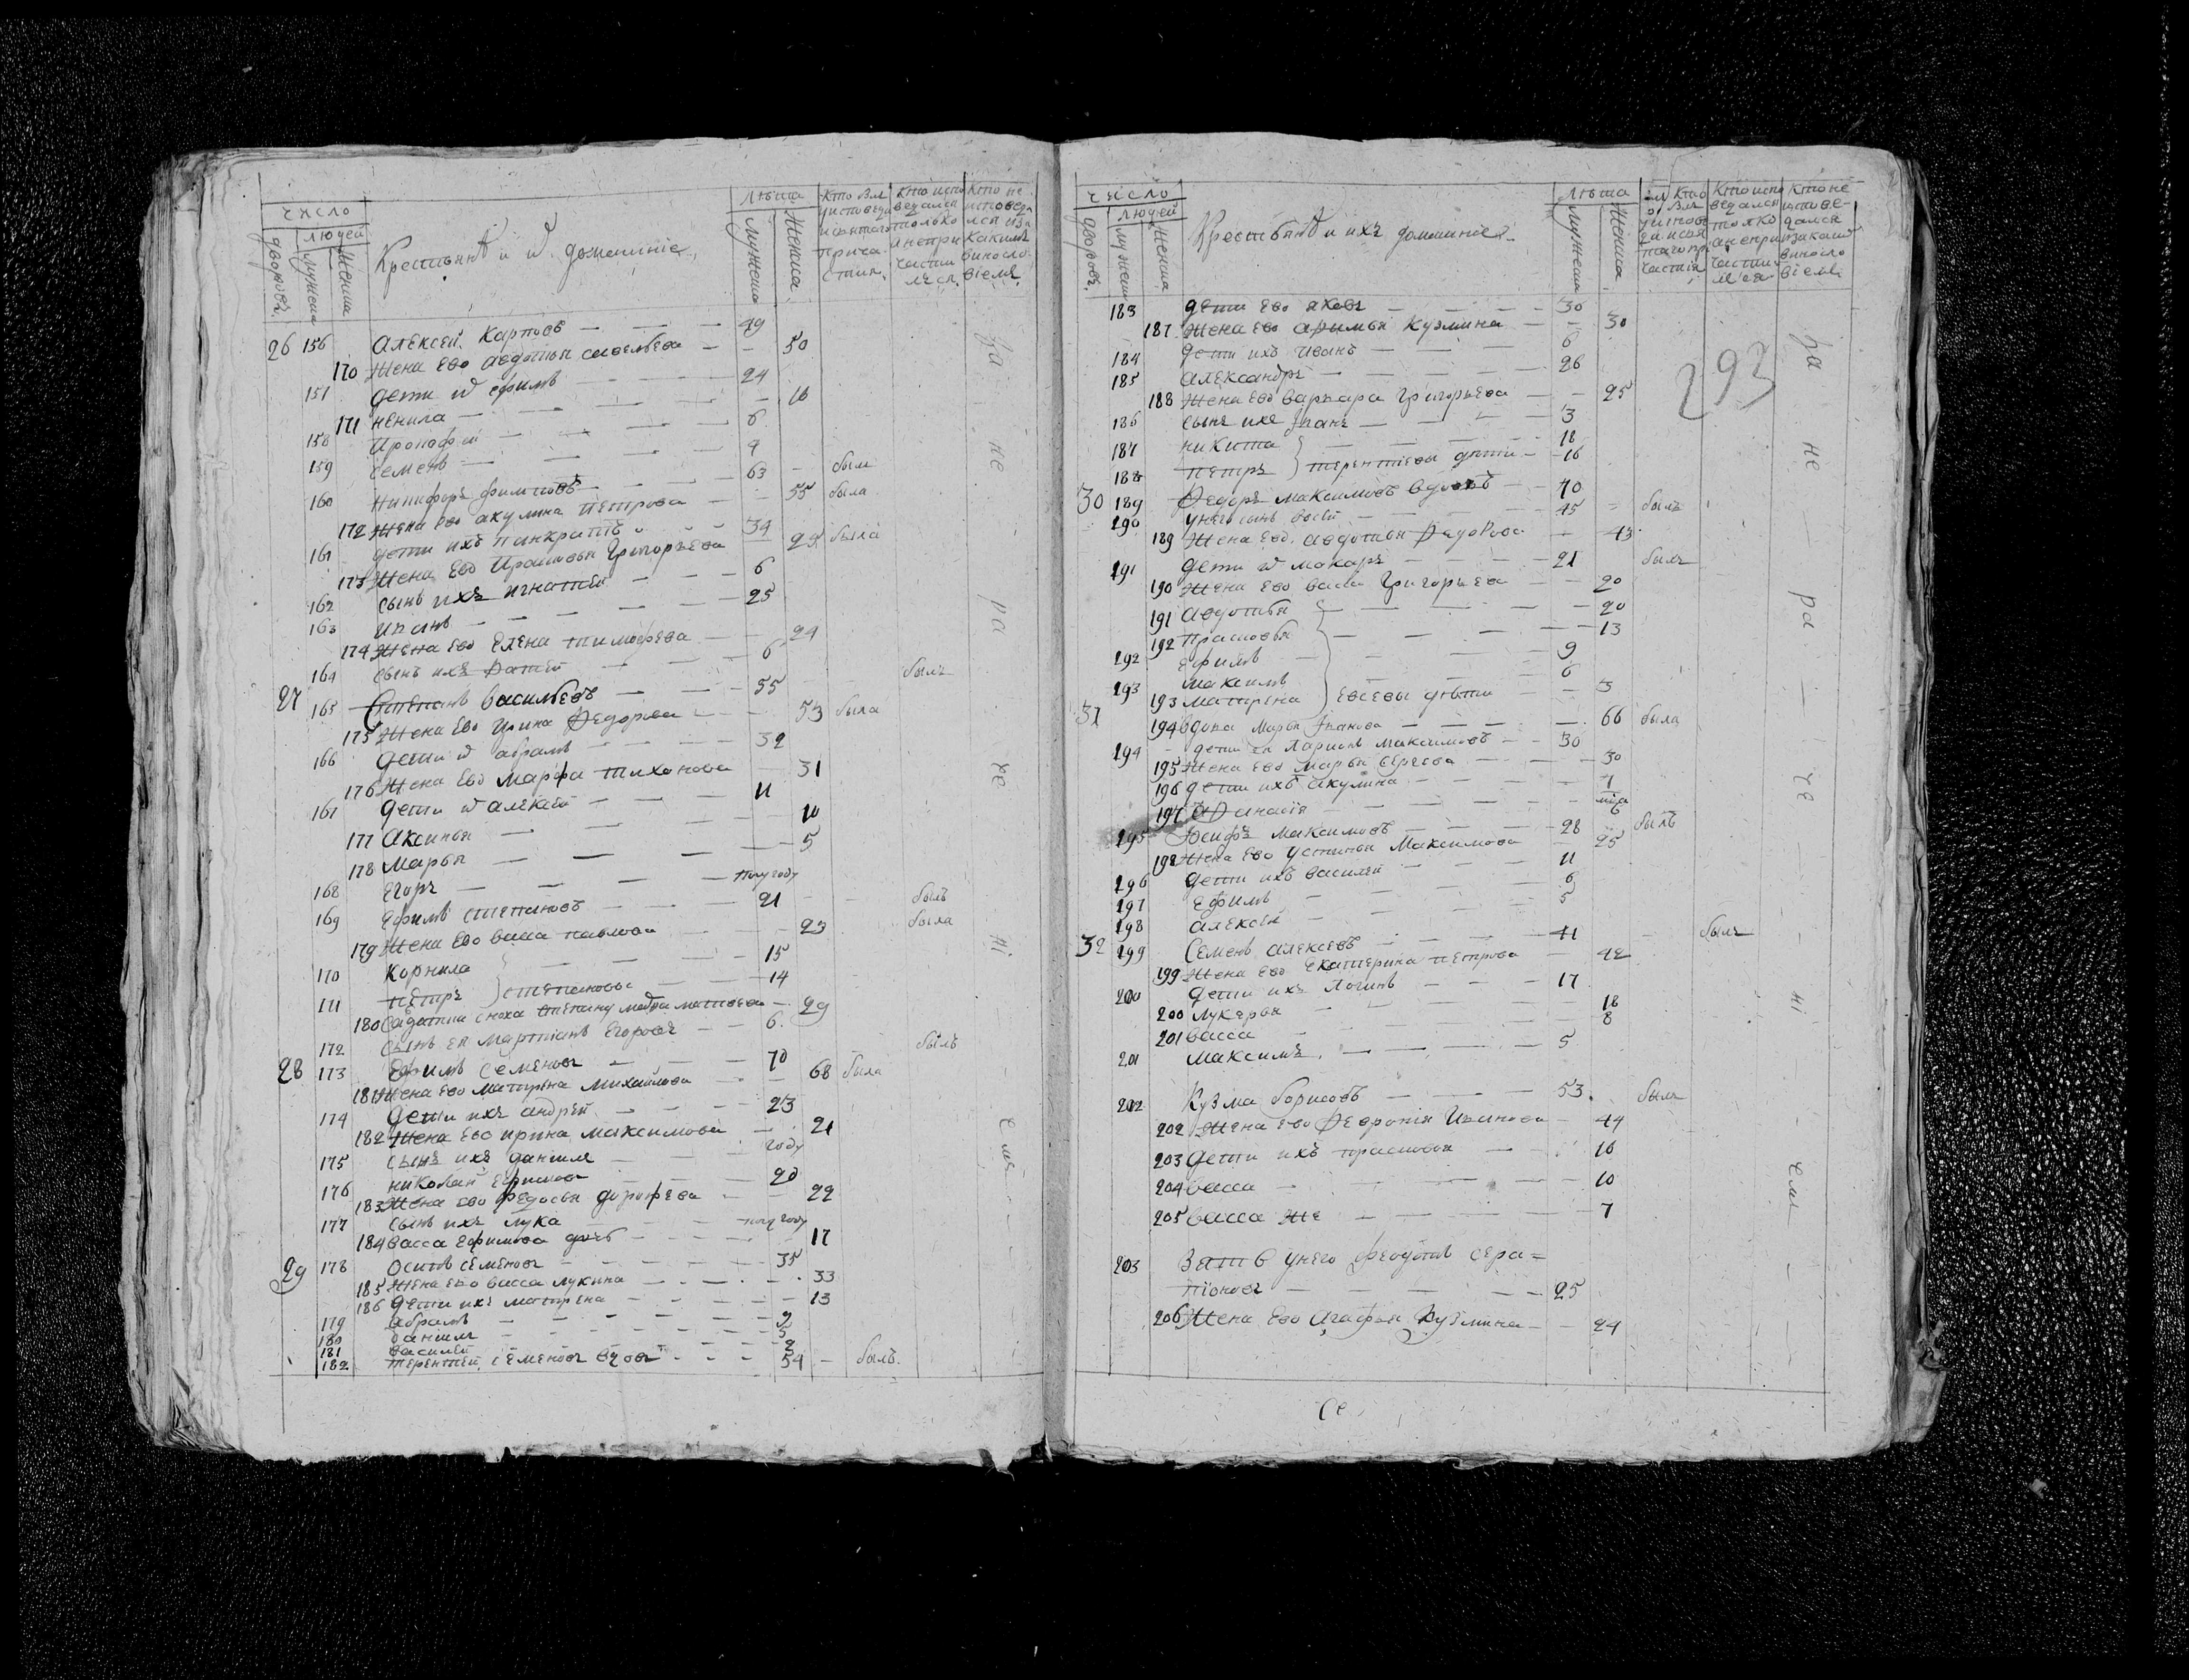 число
людей
дворовъ
мужеска
женска
Крестьянѣ и ѿ домашнїе
лѣта
мужеска
женска
кто былъ у исповеди и святаго причастия
кто исповедался только а не причастился
кто не исповедался и за какимъ винословiемъ
26 156 Алексей Карповъ — — — 49
170 Жена ево авдотья савельева — — 50
157 дети ѿ ефимъ — — — 24
171 ненила — — — — 16
158 Прокофей — — — 6
159 семенъ — — — 4
160 Никифоръ — — 63 — былъ
172 жена ево акулина петрова — — 55 была
161 дети ихъ панкратъ — — 34
173 Жена ево Прасковья Григорьева — 25 была
162 сынъ ихъ игнатей — — — 6
163 иванъ — — — — 25
174 Жена ево Елена тимофеева — — 24
164 сынъ ихъ — — 6
27 165 Степанъ васильевъ — — — 55 — — былъ
175 Жена Ево Ирина Федорова — — 53 была
166 дети ѿ абрамъ — — — 32
176 Жена Ево Марфа тихонова — 31
167 дети ѿ алексей — — — 11
177 Аксинья — — — — 10
178 Марья — — — — 5
168 Егоръ — — — — полугоду
169 Ефимъ степановъ — — — 21 — — былъ
179 Жена Ево васа павлова — — 23 была
170 Корнила — — — 15
171 петръ } степановы — — 14
180 сноха матвеева — 29
172 сынъ ея Егоровъ — — 6
28 173 Ефимъ Семеновъ — — — 70 былъ
181 Жена Ево Матрена Михайлова — — 68 была
174 Дети ихъ андрей — — — 23
182 Жена Ево ирина максимова — — 21
175 сынъ ихъ данила — — году
176 николай Ефимовъ — — 20
183 Жена ево федосья дорофеева — — 22
177 сынъ ихъ лука — — полугоду
184 васса Ефимова — — — 17
29 178 осипъ семеновъ — — — 35
185 Жена ево васса лукина — — — 33
186 дети ихъ матрена — — — — 13
179 абрамъ — — — —
180 данила — — — — 5
181 василей — — — — 2
182 терентей семеновъ вдовъ — — — 54 — былъ
за не ра че нi емъ
число
людей
дворовъ
мужеска
женска
Крестьянѣ и ихъ домашнїе
лѣта
мужеска
женска
293
183 дети ево яковъ — — — 30
187 Жена ево Кузмина — — 30
184 дети ихъ иванъ — — — 6
185 александръ — — — 26
188 Жена Ево варвара Григорьева — — 25
186 сынъ ихъ Iванъ — — — 3
187 никита — — — 18
188 петръ } терентиевы дети — 16
30 189 Федоръ максимовъ вдовъ — 70
190 у него сынъ — — — 45 — былъ
189 Жена ево авдотья Федорова — 43
191 дети ѿ макаръ — — — 21 былъ
190 Жена Ево васа Григорьева — — 20
191 авдотья — — — — 20
192 прасковья — — — — 13
192 Ефимъ — — — 9
193 максимъ — — — 6
193 матрена } Евсевы дѣти — — 3
31 194 вдова Марья Iванова — — — — 66 была
194 дети ея ларионъ максимовъ — — 30
195 Жена ево Марья сергеева — — — 30
196 дети ихъ акулина — — — — 7
197 — — — —
195 Iосифъ максимовъ — — — 28 былъ
198 Жена ево устинья Максимова — 25
196 дети ихъ василей — — 11
197 Ефимъ — — — 6
198 алексей — — — 5
32 199 Семенъ алексеевъ — — — 41 — былъ
199 Жена ево Екатерина петрова — 42
200 дети ихъ логинъ — — — 17
200 лукерья — — — — 18
201 васса — — — — 8
201 максимъ — — — — 5
202 Кузма борисовъ — — — 53 былъ
202 Жена ево Февронiя Иванова — 44
203 дети ихъ прасковья — — 16
204 васса — — — — 10
205 васса же — — — — 7
203 Зять у него сера=
пiоновъ — — — — 25
206 Жена ево Агафья Кузмина — — 24
за не ра че нi емъ
Се